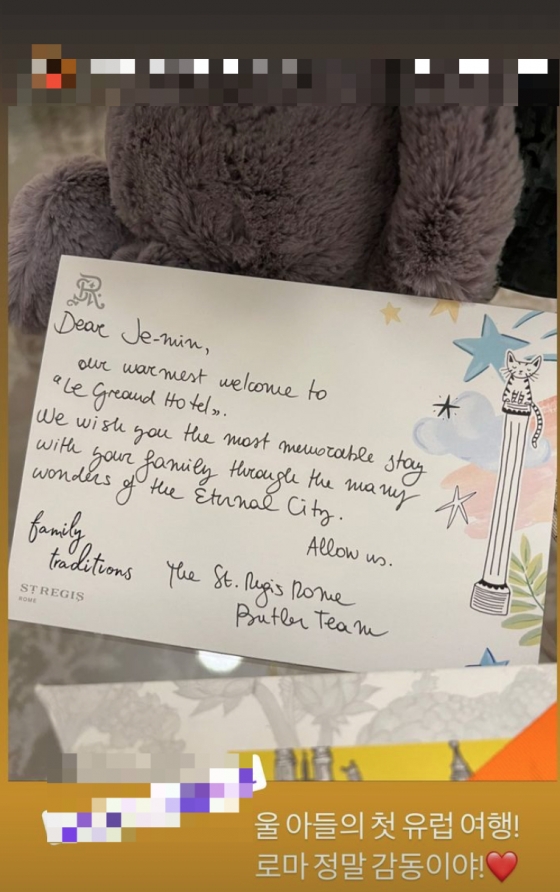 Dear Je-min,
our warmest welcome to
"Le Greand Hotel".
We wish you the most memorable stay
with your family through the many
wonders of the Eternal City.
Allow us.
The St. Regis Rome
Butler Team
family
traditions
ST REGIS
ROME
울 아들의 첫 유럽 여행!
로마 정말 감동이야!❤️